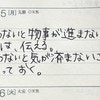 5(月)
ないと物事が進まない
は、伝える。
ないと気が済まないこ
っておく。
6(火)